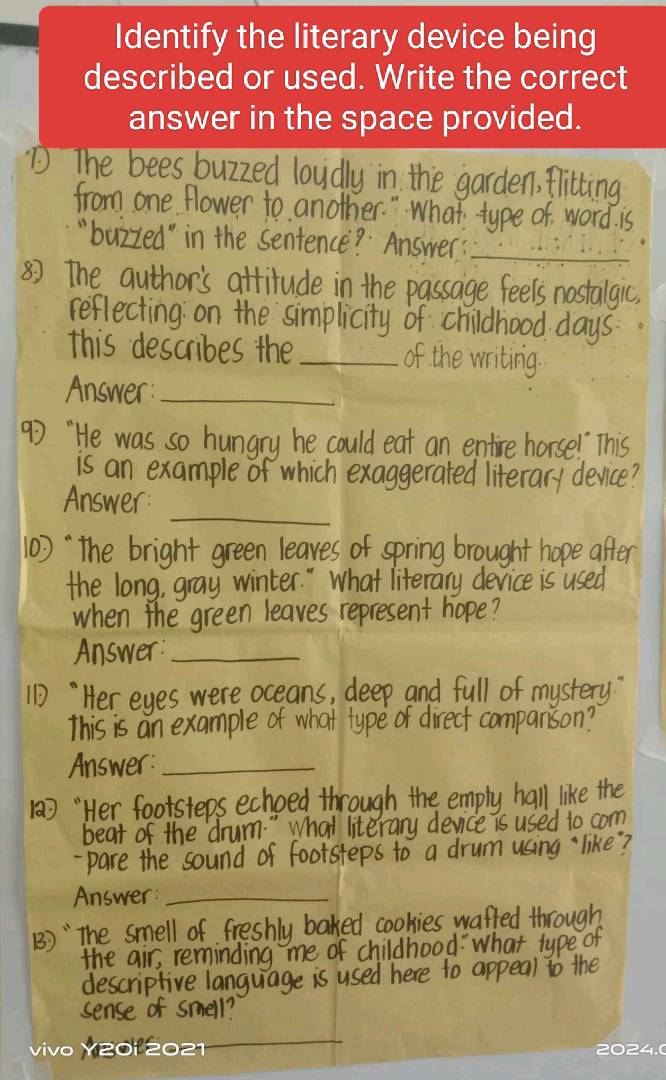 Identify the literary device being
described or used. Write the correct
answer in the space provided.
7.) "The bees buzzed loudly in the garden, flitting
from one flower to another." What type of word is
"buzzed" in the sentence? Answer: ________
8.) The author's attitude in the passage feels nostalgic,
reflecting on the simplicity of childhood days.
This describes the ________ of the writing.
Answer: ________
9.) "He was so hungry he could eat an entire horse!" This
is an example of which exaggerated literary device?
Answer: ________
10.) "The bright green leaves of spring brought hope after
the long, gray winter." What literary device is used
when the green leaves represent hope?
Answer: ________
11.) "Her eyes were oceans, deep and full of mystery."
This is an example of what type of direct comparison?
Answer: ________
12.) "Her footsteps echoed through the empty hall like the
beat of the drum." What literary device is used to com
-pare the sound of footsteps to a drum using "like"?
Answer: ________
13.) "The smell of freshly baked cookies wafted through
the air, reminding me of childhood." What type of
descriptive language is used here to appeal to the
sense of smell?
Answer: ________
vivo Y20i 2021
2024.0